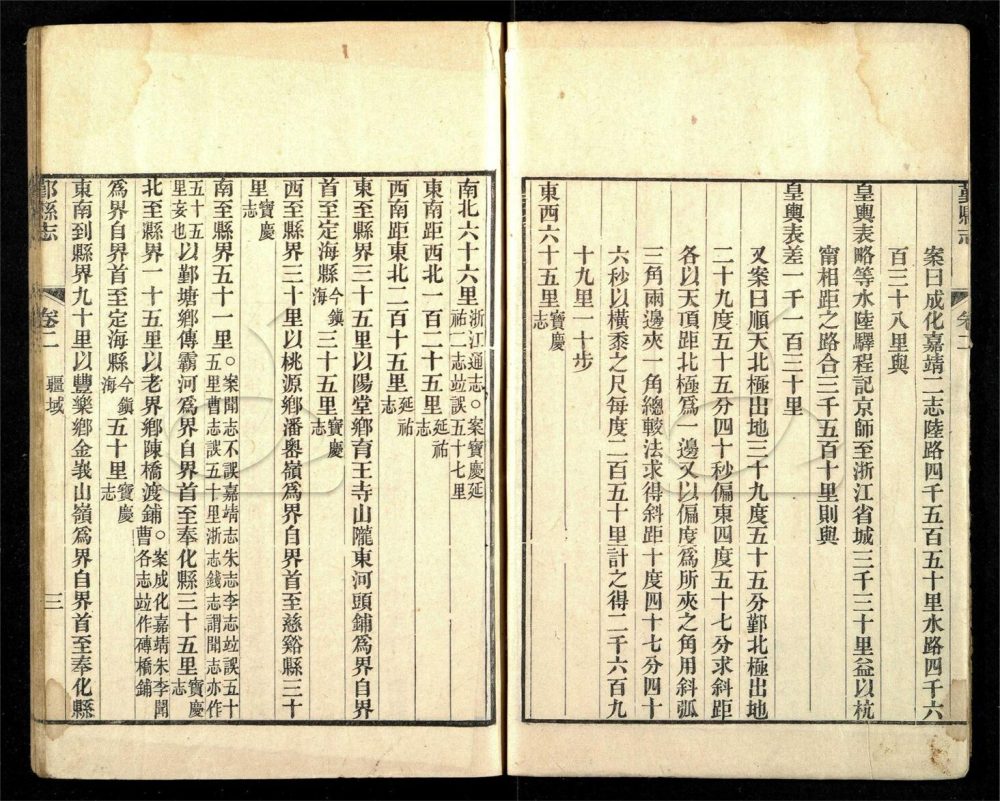 鄞縣志 卷二
案曰成化嘉靖二志陸路四千五百五十里水路四千六
百三十八里與
皇輿表略等水陸驛程記京師至浙江省城三千三十里益以杭
甯相距之路合三千五百十里則與
皇輿表差一千一百三十里
又案曰順天北極出地三十九度五十五分鄞北極出地
二十九度五十五分四十秒偏東四度五十七分求斜距
各以天頂距北極爲一邊又以偏度爲所夾之角用斜弧
三角兩邊夾一角總較法求得斜距十度四十七分四十
六秒以橫黍之尺每度二百五十里計之得二千六百九
十九里一十步
東西六十五里寶慶志
南北六十六里浙江通志○案寶慶延祐二志竝誤五十七里
東南距西北一百二十五里延祐志
西南距東北二百十五里延祐志
東至縣界三十五里以陽堂鄉育王寺山隴東河頭鋪爲界自界
首至定海縣今鎭海三十五里寶慶志
西至縣界三十里以桃源鄉潘嶴嶺爲界自界首至慈谿縣三十
里寶慶志
南至縣界五十一里○案聞志不誤嘉靖志朱志李志竝誤五十五里曹志誤五十里浙志錢志謂聞志亦作五十五里妄也以鄞塘鄉傅霸河爲界自界首至奉化縣三十五里寶慶志
北至縣界一十五里以老界鄉陳橋渡鋪○案成化嘉靖朱李聞曹各志竝作磚橋鋪
爲界自界首至定海縣今鎭海五十里寶慶志
東南到縣界九十里以豐樂鄉金峩山嶺爲界自界首至奉化縣
鄞縣志 卷二 疆域 三